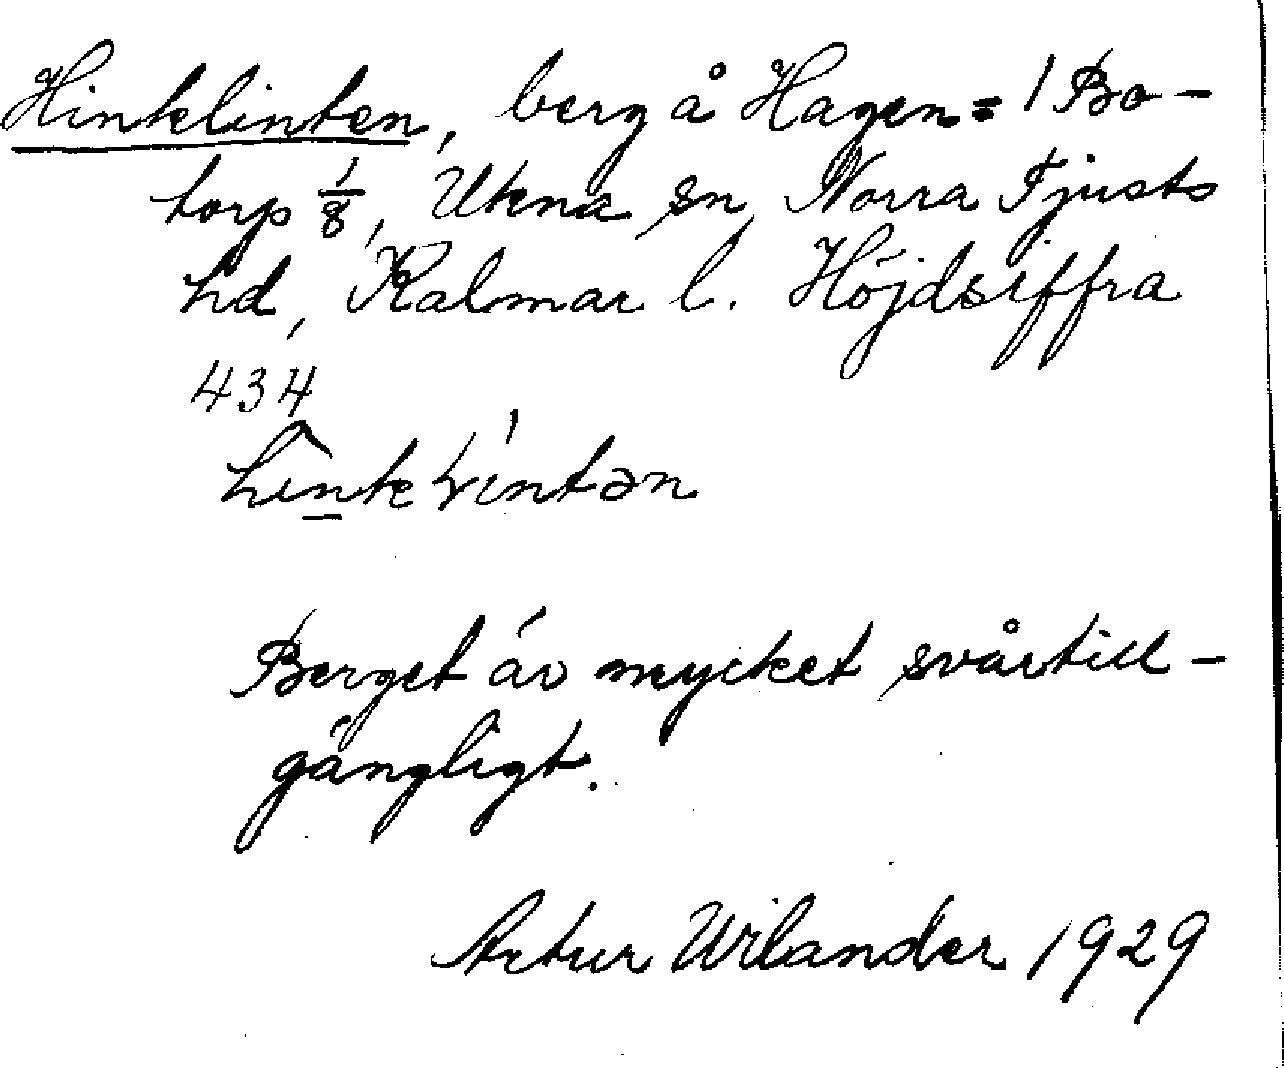 Hinklinten, berg å Hagen = 1 Bo-
torp 1/8, Ukna sn, Norra Tjusts
hd, Kalmar l. Höjdsiffra
434
Berget är mycket svårtill-
gängligt.
Artur Wilander 1929